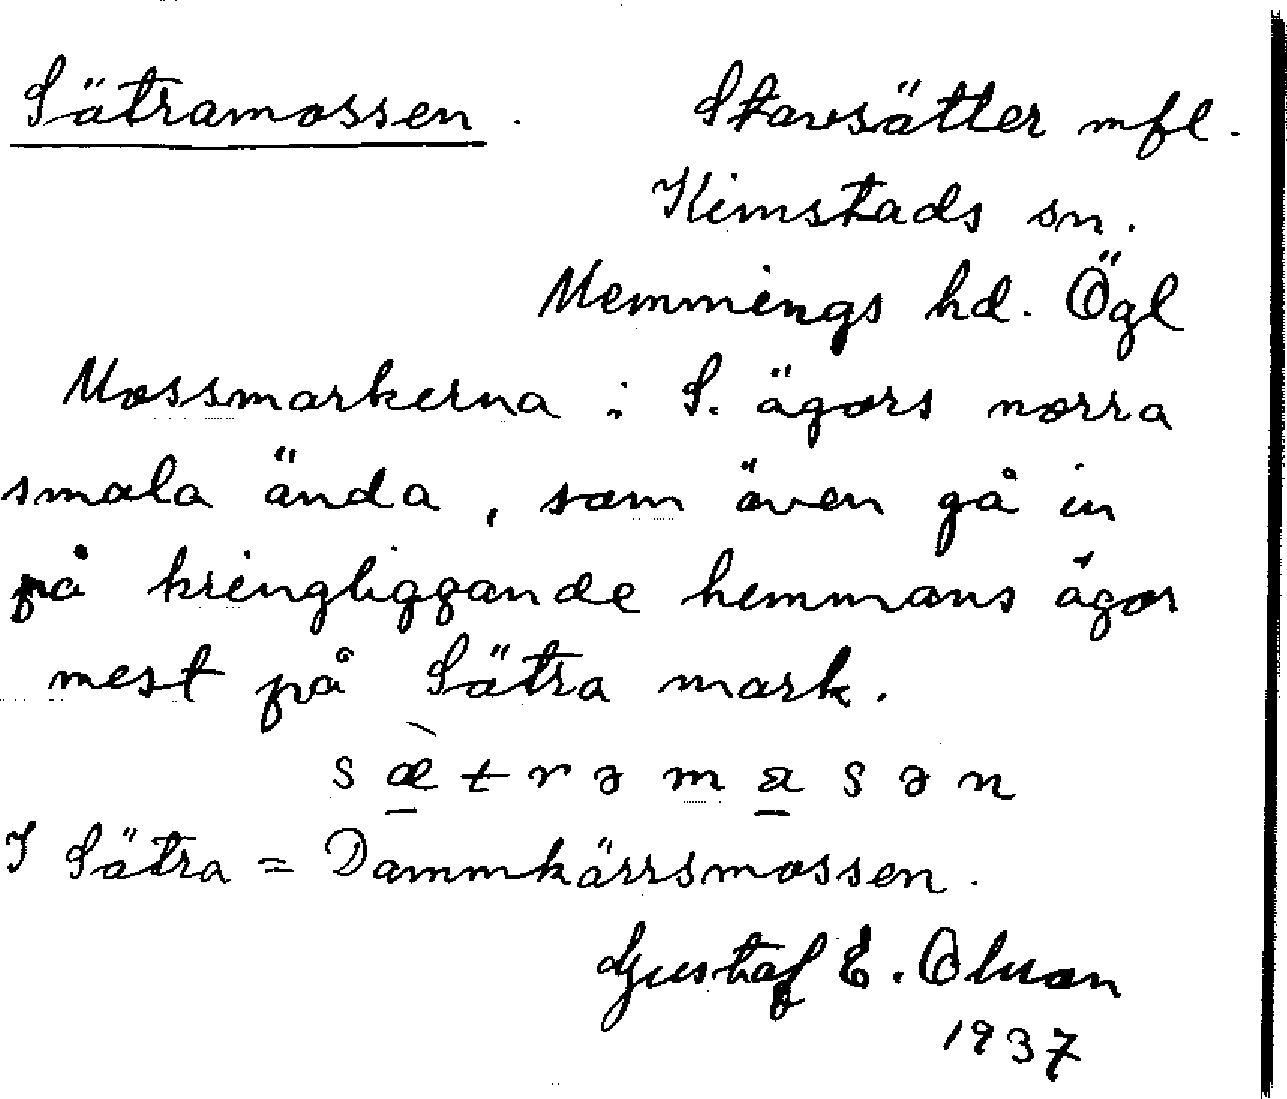 Sätramossen. Stavsätter mfl.
Kimstads sn.
Memmings hd. Ögl
Mossmarkerna i S. ägors norra
smala ända, som även gå in
på kringliggande hemmans ägor
mest på Sätra mark.
sæ̀trəmasən
I Sätra = Dammkärrsmossen.
Gustaf E. Olsson
1937